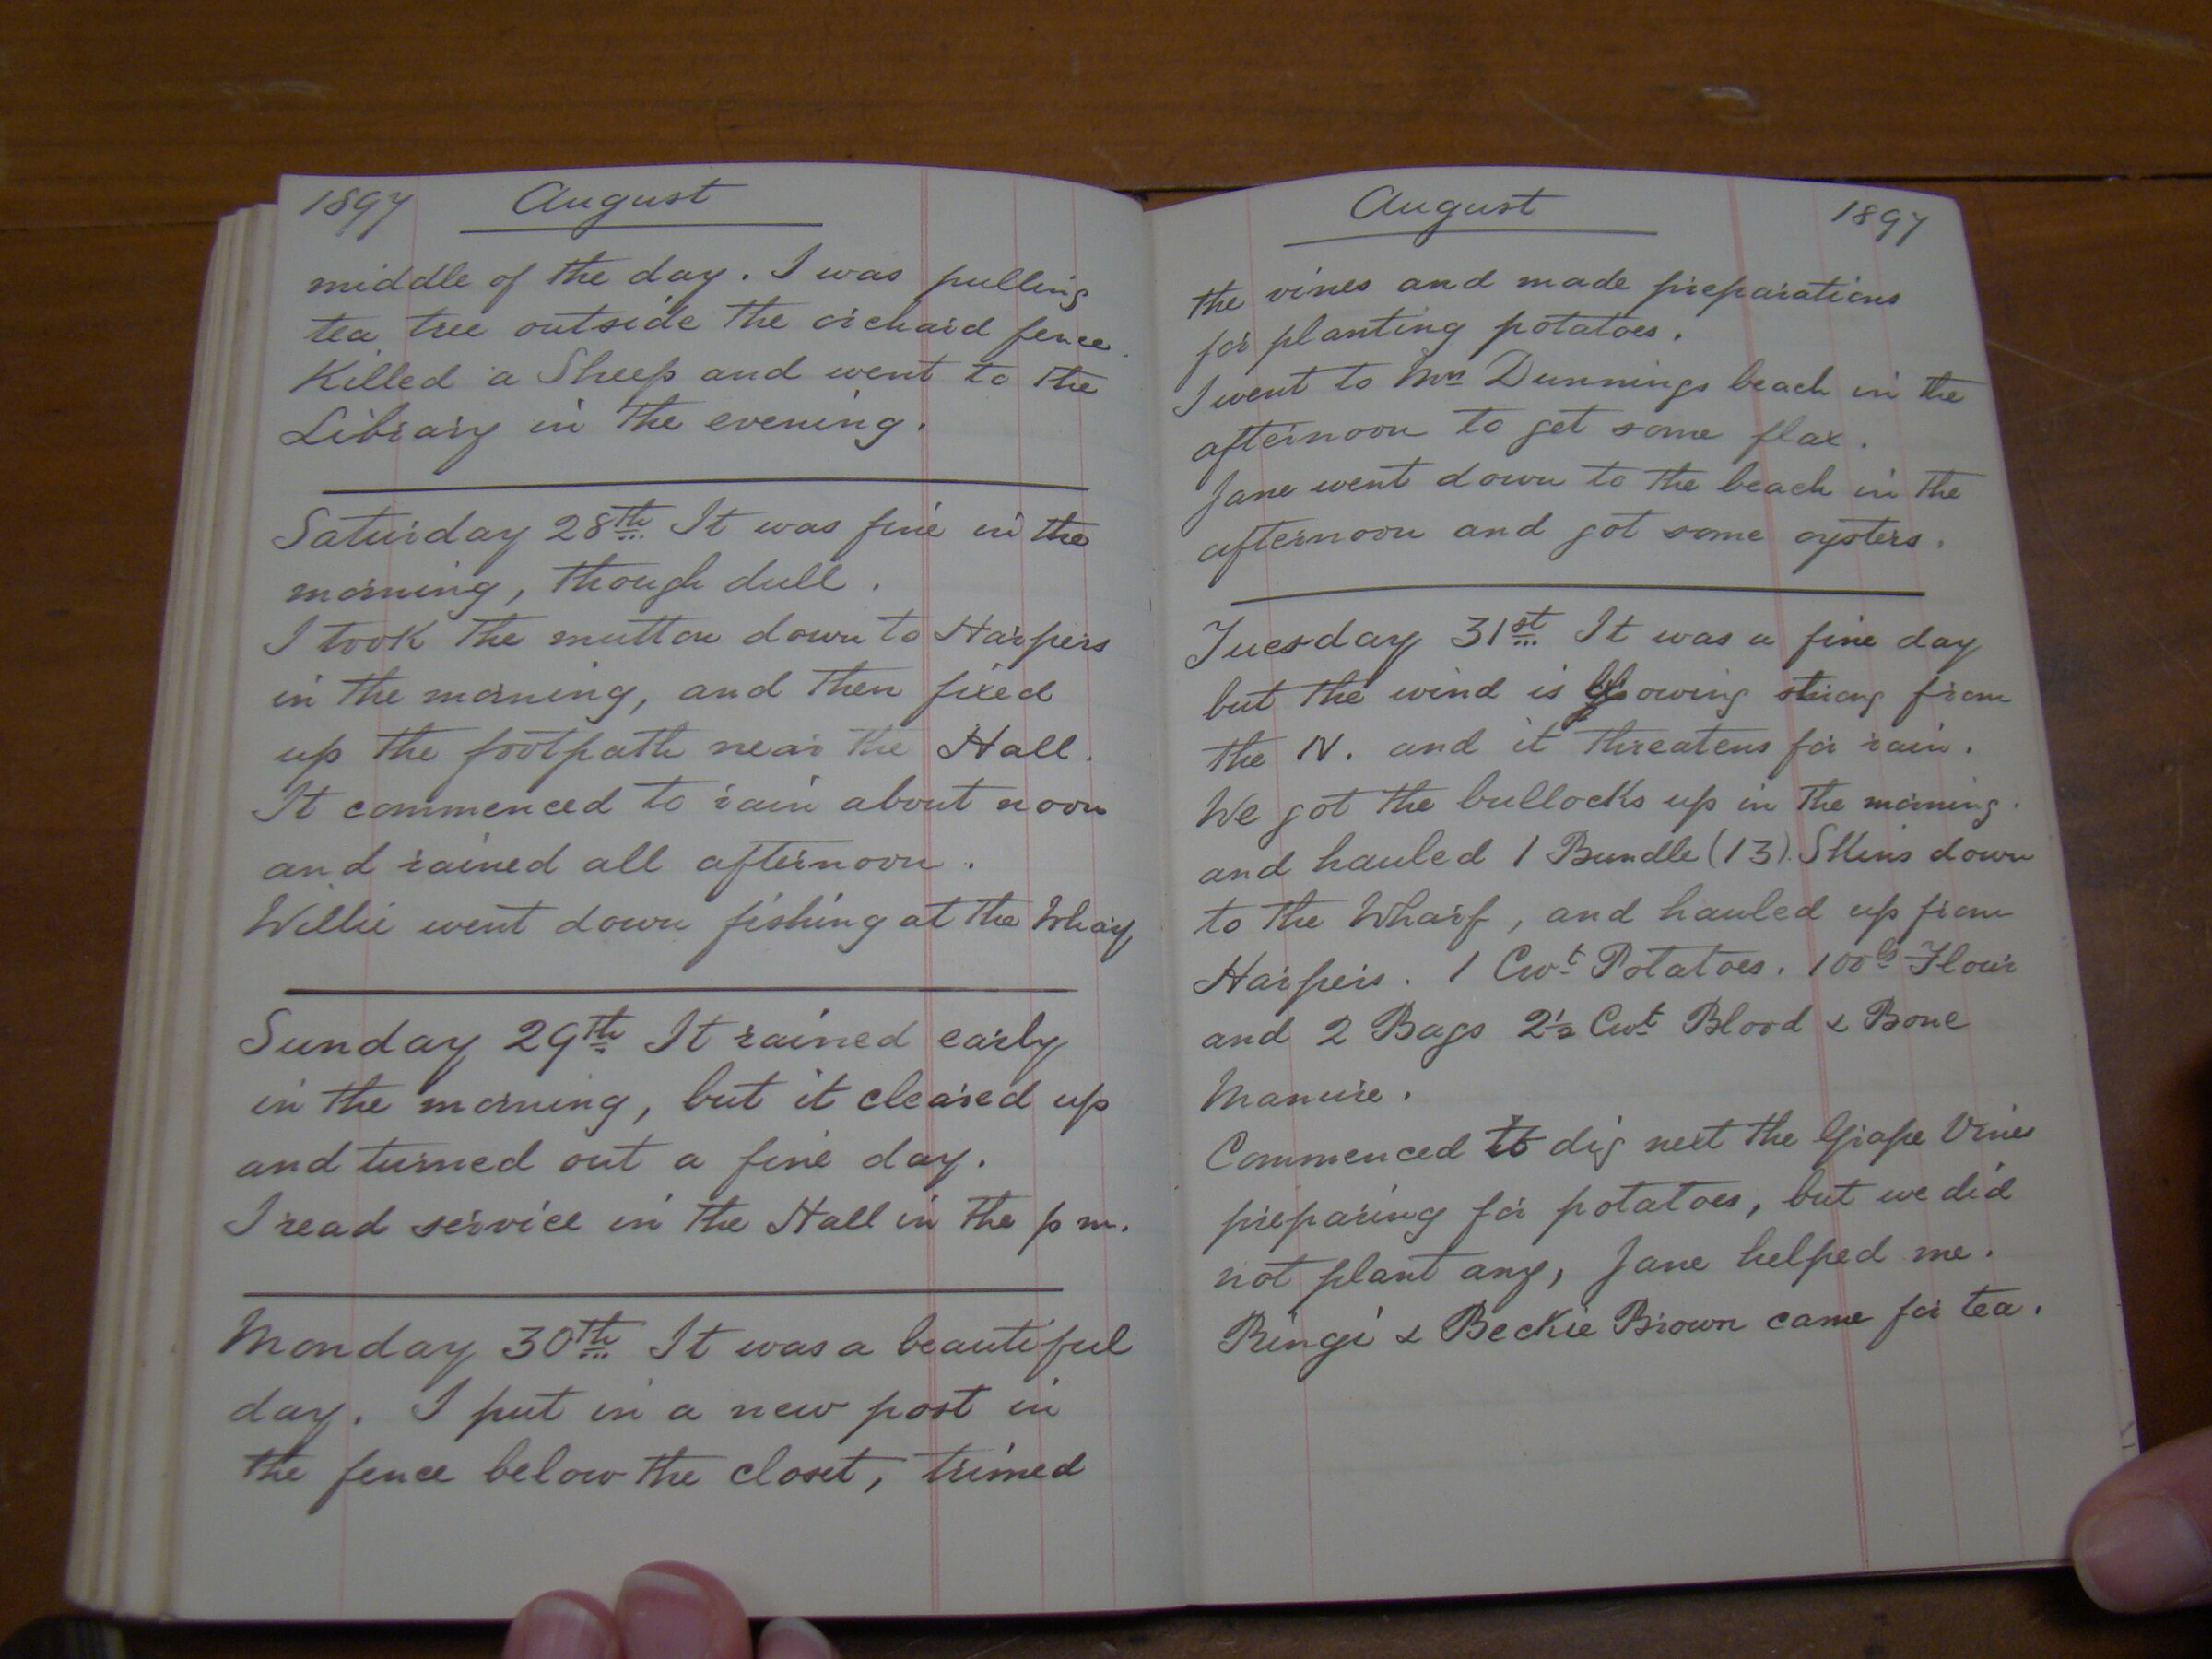 1897 August
middle of the day. I was pulling
tea tree outside the orchard fence.
Killed a Sheep and went to the
Library in the evening.
Saturday 28th It was fine in the
morning, though dull.
I took the mutton down to Harpers
in the morning, and then fixed
up the footpath near the Hall.
It commenced to rain about noon
and rained all afternoon.
Willie went down fishing at the Wharf
Sunday 29th It rained early
in the morning, but it cleared up
and turned out a fine day.
I read service in the Hall in the p m.
Monday 30th It was a beautiful
day. I put in a new post in
the fence below the closet, trimed
August 1897
the vines and made preparations
for planting potatoes.
I went to Mrs Dunnings beach in the
afternoon to get some flax.
Jane went down to the beach in the
afternoon and got some oysters.
Tuesday 31st It was a fine day
but the wind is blowing strong from
the N. and it threatens for rain.
We got the bullocks up in the morning.
and hauled 1 Bundle (13) Skins down
to the Wharf, and hauled up from
Harpers. 1 Cwt Potatoes. 100 lb Flour
and 2 Bags 2½ Cwt Blood & Bone
Manure.
Commenced to dig next the Grape Vines
preparing for potatoes, but we did
not plant any, Jane helped me.
& Beckie Brown came for tea.